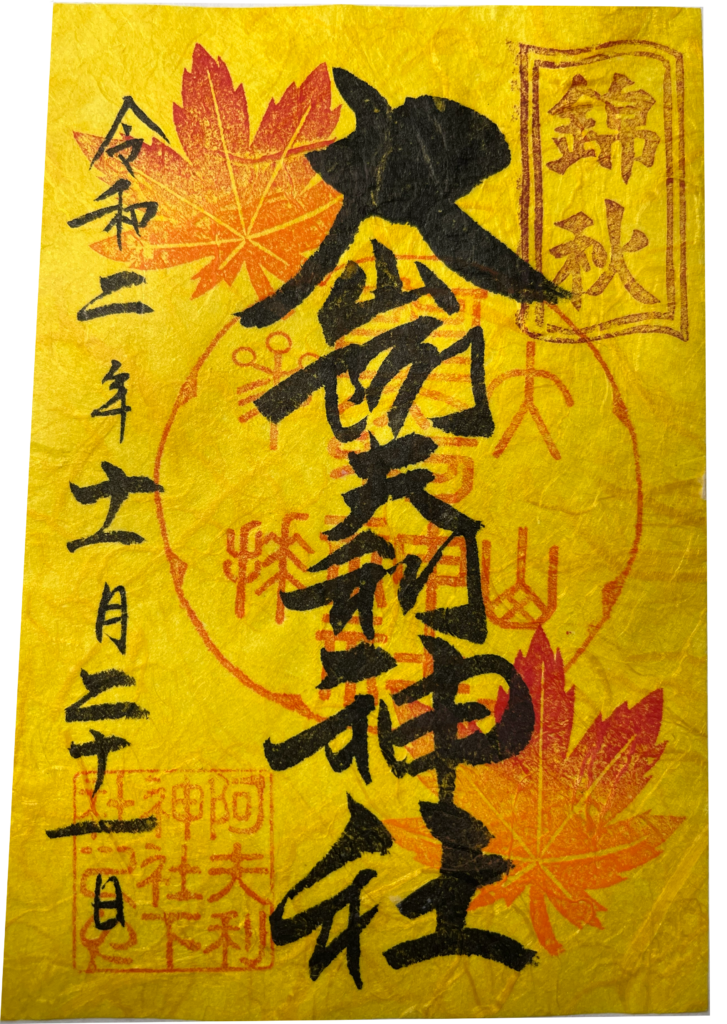 錦秋
大山阿夫利神社
令和二年十一月二十一日
大山
阿夫利
神社下
社